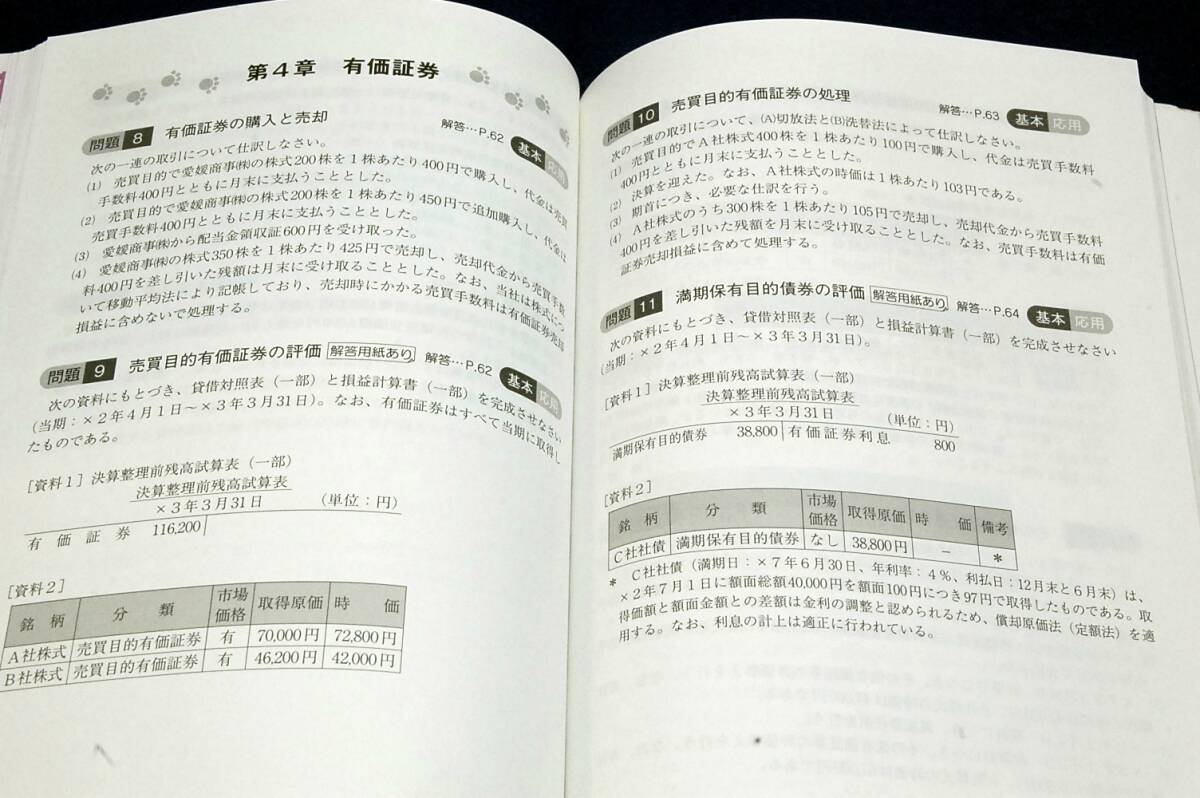 第4章 有価証券
問題 8 有価証券の購入と売却 解答…P.62 基本 応用
次の一連の取引について仕訳しなさい。
(1) 売買目的で愛媛商事㈱の株式200株を1株あたり400円で購入し、代金は売買
手数料400円とともに月末に支払うこととした。
(2) 売買目的で愛媛商事㈱の株式200株を1株あたり450円で追加購入し、代金は
売買手数料400円とともに月末に支払うこととした。
(3) 愛媛商事㈱から配当金領収証600円を受け取った。
(4) 愛媛商事㈱の株式350株を1株あたり425円で売却し、売却代金から売買手数
料400円を差し引いた残額は月末に受け取ることとした。なお、当社は株式につ
いて移動平均法により記帳しており、売却時にかかる売買手数料は有価証券売却
損益に含めないで処理する。
問題 9 売買目的有価証券の評価 解答用紙あり 解答…P.62 基本 応用
次の資料にもとづき、貸借対照表（一部）と損益計算書（一部）を完成させなさい
（当期：×2年4月1日～×3年3月31日）。なお、有価証券はすべて当期に取得し
たものである。
［資料1］決算整理前残高試算表（一部）
決算整理前残高試算表
×3年3月31日 （単位：円）
有価証券 116,200
［資料2］
銘柄 分類 市場価格 取得原価 時価
A社株式 売買目的有価証券 有 70,000円 72,800円
B社株式 売買目的有価証券 有 46,200円 42,000円
問題 10 売買目的有価証券の処理 解答…P.63 基本 応用
次の一連の取引について、(A)切放法と(B)洗替法によって仕訳しなさい。
(1) 売買目的でA社株式400株を1株あたり100円で購入し、代金は売買手数料
400円とともに月末に支払うこととした。
(2) 決算を迎えた。なお、A社株式の時価は1株あたり103円である。
(3) 期首につき、必要な仕訳を行う。
(4) A社株式のうち300株を1株あたり105円で売却し、売却代金から売買手数料
400円を差し引いた残額を月末に受け取ることとした。なお、売買手数料は有価
証券売却損益に含めて処理する。
問題 11 満期保有目的債券の評価 解答用紙あり 解答…P.64 基本 応用
次の資料にもとづき、貸借対照表（一部）と損益計算書（一部）を完成させなさい
（当期：×2年4月1日～×3年3月31日）。
［資料1］決算整理前残高試算表（一部）
決算整理前残高試算表
×3年3月31日 （単位：円）
満期保有目的債券 38,800 有価証券利息 800
［資料2］
銘柄 分類 市場価格 取得原価 時価 備考
C社社債 満期保有目的債券 なし 38,800円 － *
* C社社債（満期日：×7年6月30日、年利率：4％、利払日：12月末と6月末）は、
×2年7月1日に額面総額40,000円を額面100円につき97円で取得したものである。取
得価額と額面金額との差額は金利の調整と認められるため、償却原価法（定額法）を適
用する。なお、利息の計上は適正に行われている。